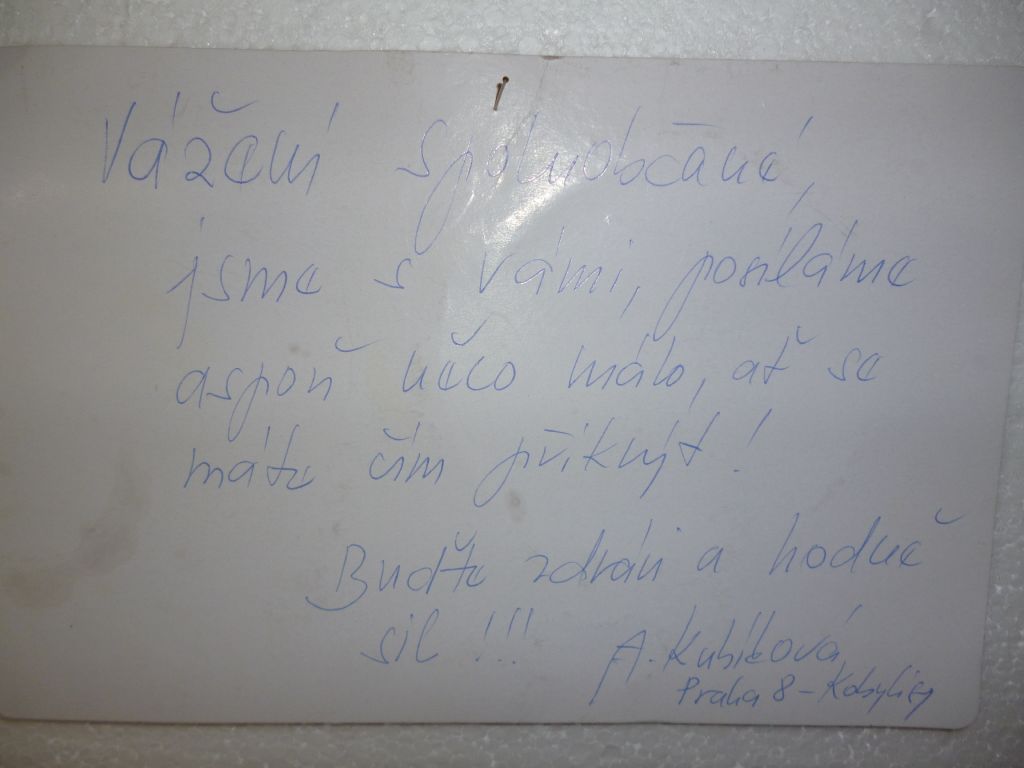 Vážení spoluobčané,
jsme s vámi, posíláme
aspoň něco málo, ať se
máte čím přikrýt!
Buďte zdrávi a hodně
sil !!!
A. Kubíková
Praha 8 - Kobylisy